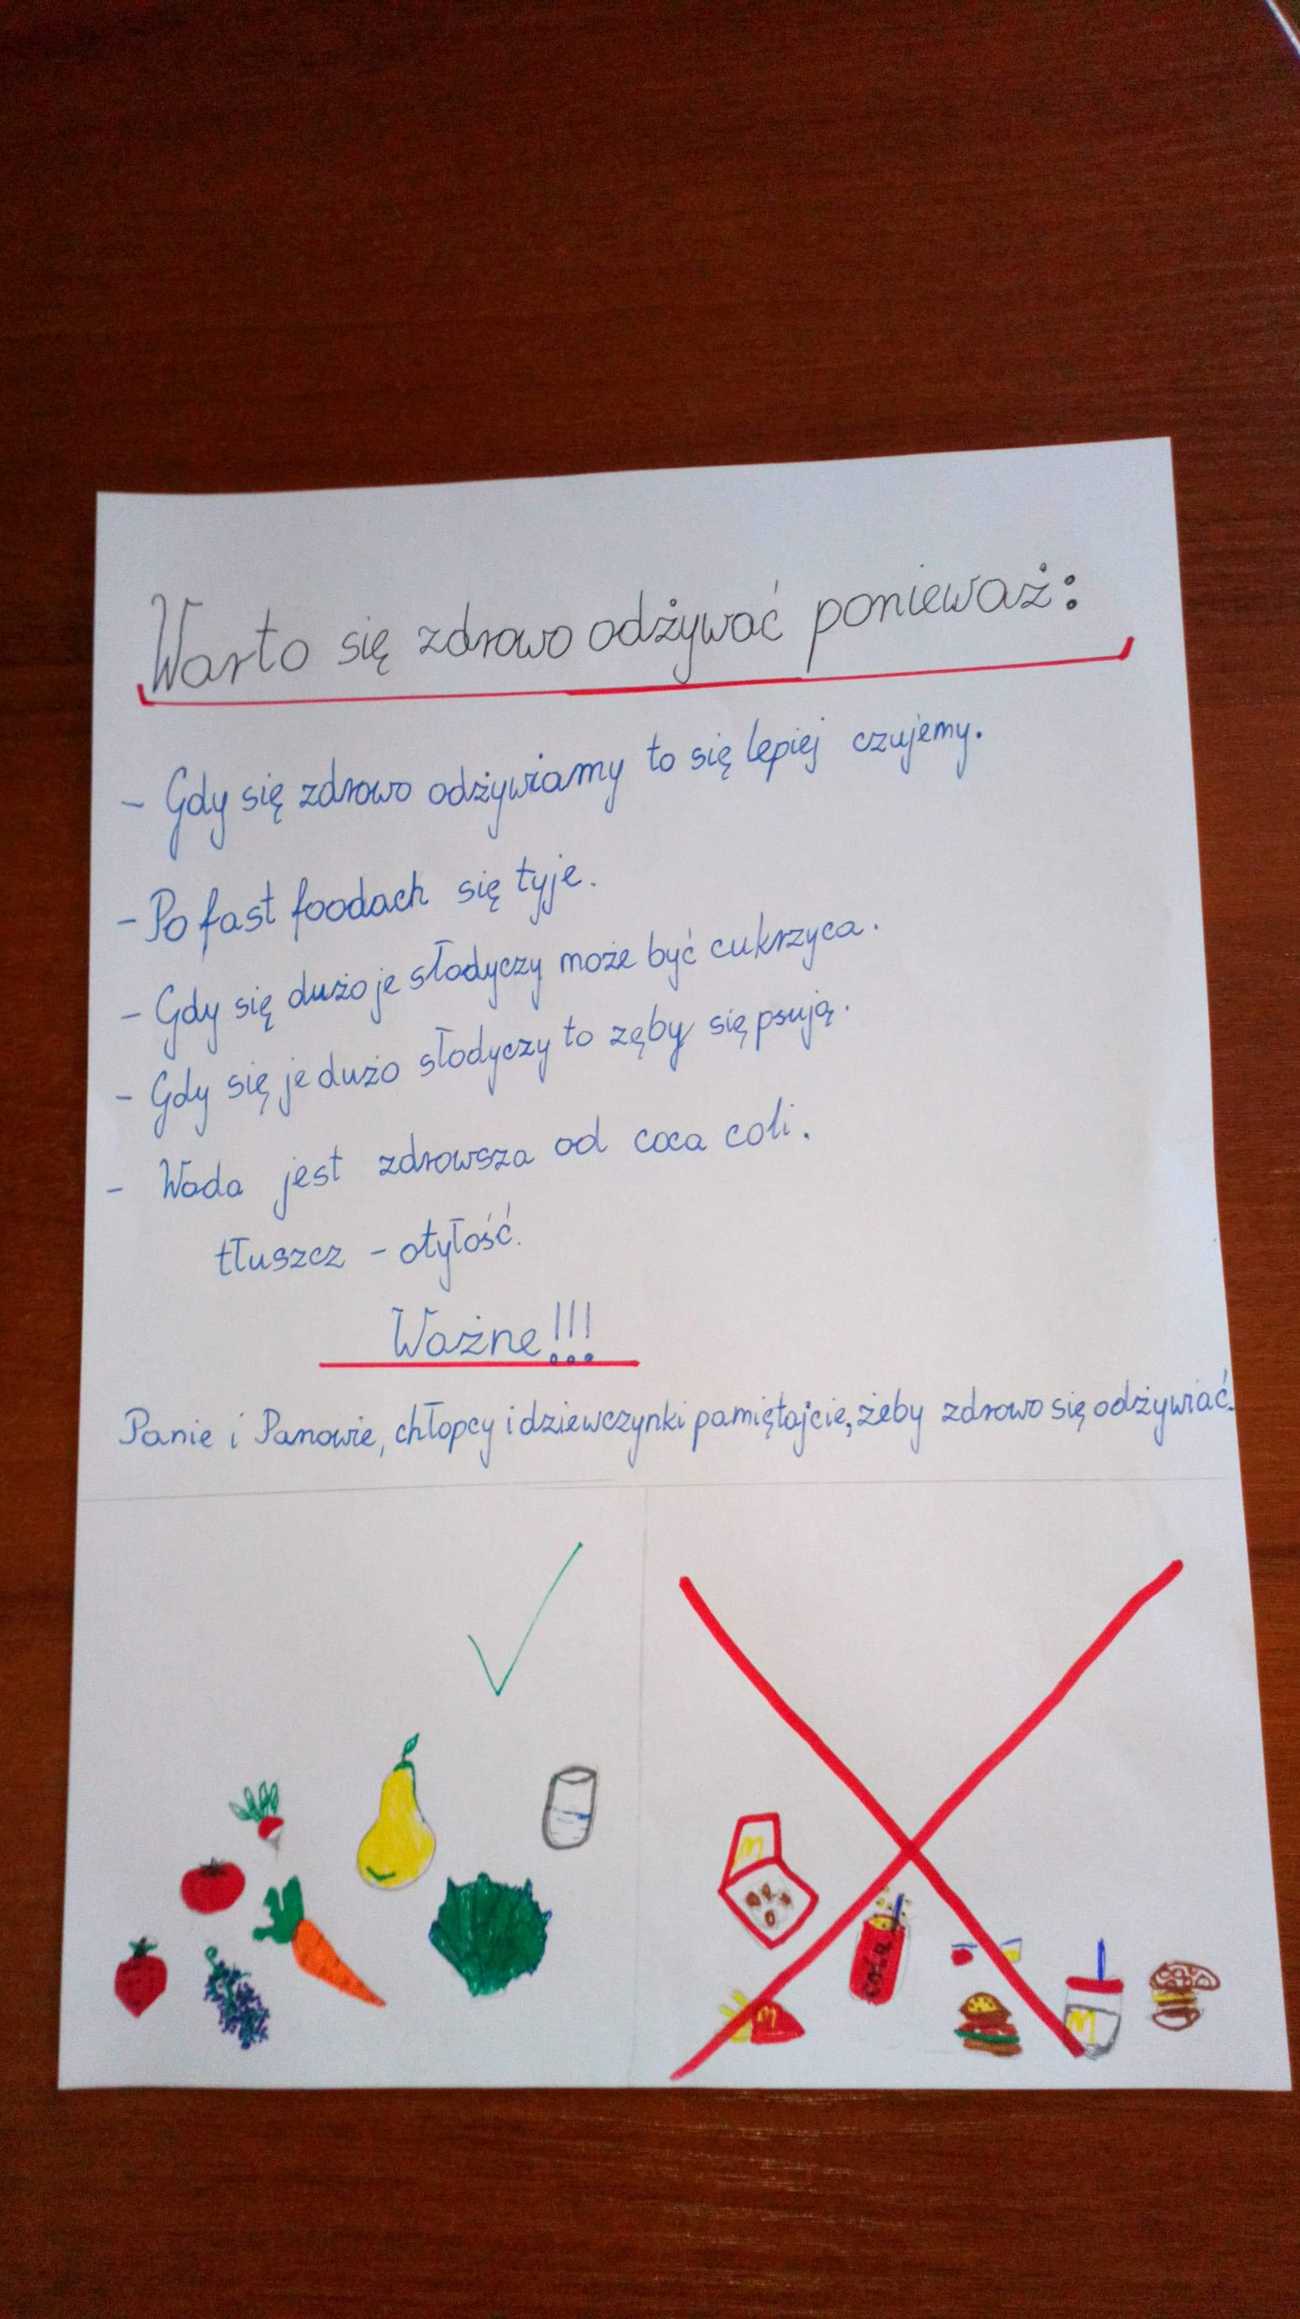 Warto się zdrowo odżywać ponieważ:
- Gdy się zdrowo odżywiamy to się lepiej czujemy.
- Po fast foodach się tyje.
- Gdy się dużo je słodyczy może być cukrzyca.
- Gdy się je dużo słodyczy to zęby się psują.
- Woda jest zdrowsza od coca coli.
tłuszcz - otyłość.
Ważne!!!
Panie i Panowie, chłopcy i dziewczynki pamiętajcie, żeby zdrowo się odżywiać.
M
cola
M
M